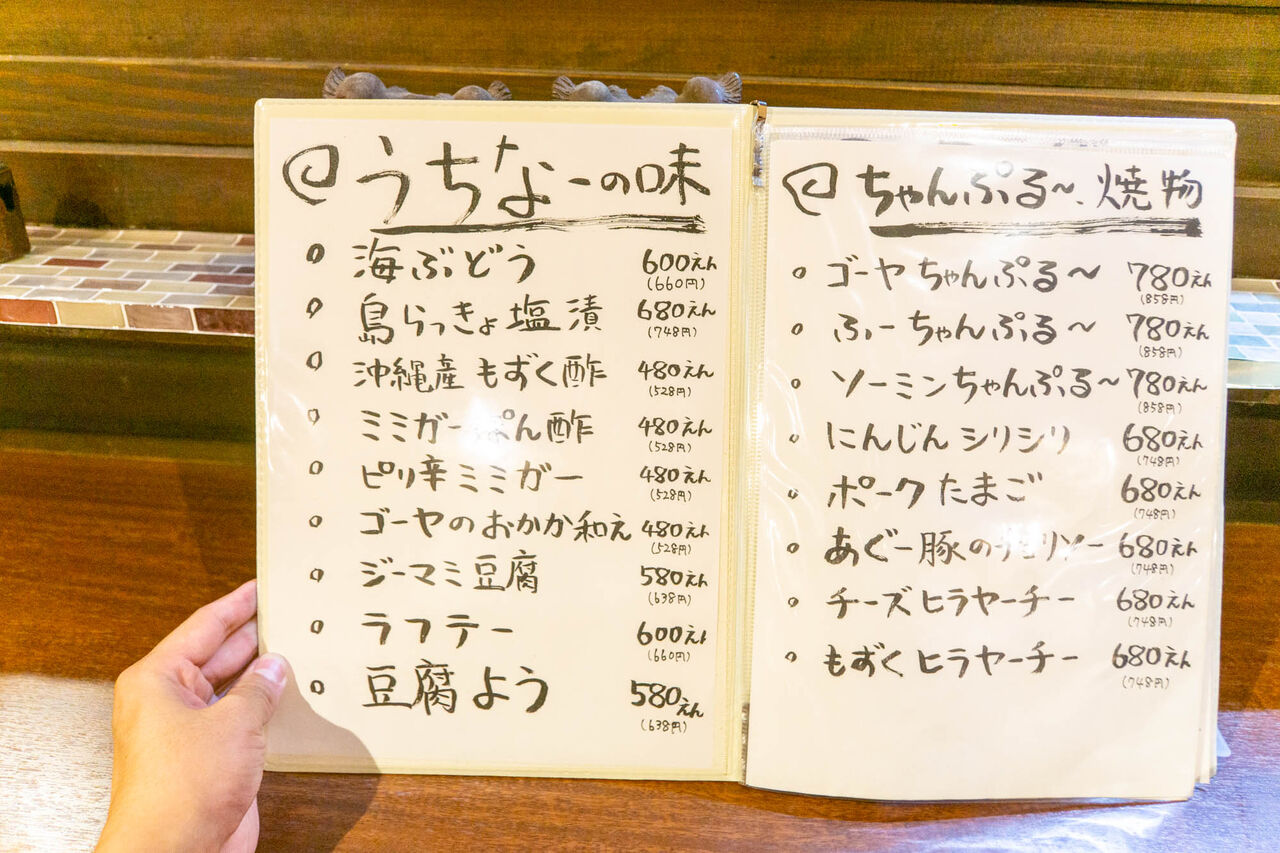 うちなーの味
海ぶどう 600えん
(660円)
島らっきょ塩漬 680えん
(748円)
沖縄産もずく酢 480えん
(528円)
ミミガーぽん酢 480えん
(528円)
ピリ辛ミミガー 480えん
(528円)
ゴーヤのおかか和え 480えん
(528円)
ジーマミ豆腐 580えん
(638円)
ラフテー 600えん
(660円)
豆腐よう 580えん
(638円)
ちゃんぷる〜、焼物
ゴーヤちゃんぷる〜 780えん
(858円)
ふーちゃんぷる〜 780えん
(858円)
ソーミンちゃんぷる〜 780えん
(858円)
にんじんシリシリ 680えん
(748円)
ポークたまご 680えん
(748円)
あぐー豚のチョリソー 680えん
(748円)
チーズヒラヤーチー 680えん
(748円)
もずくヒラヤーチー 680えん
(748円)